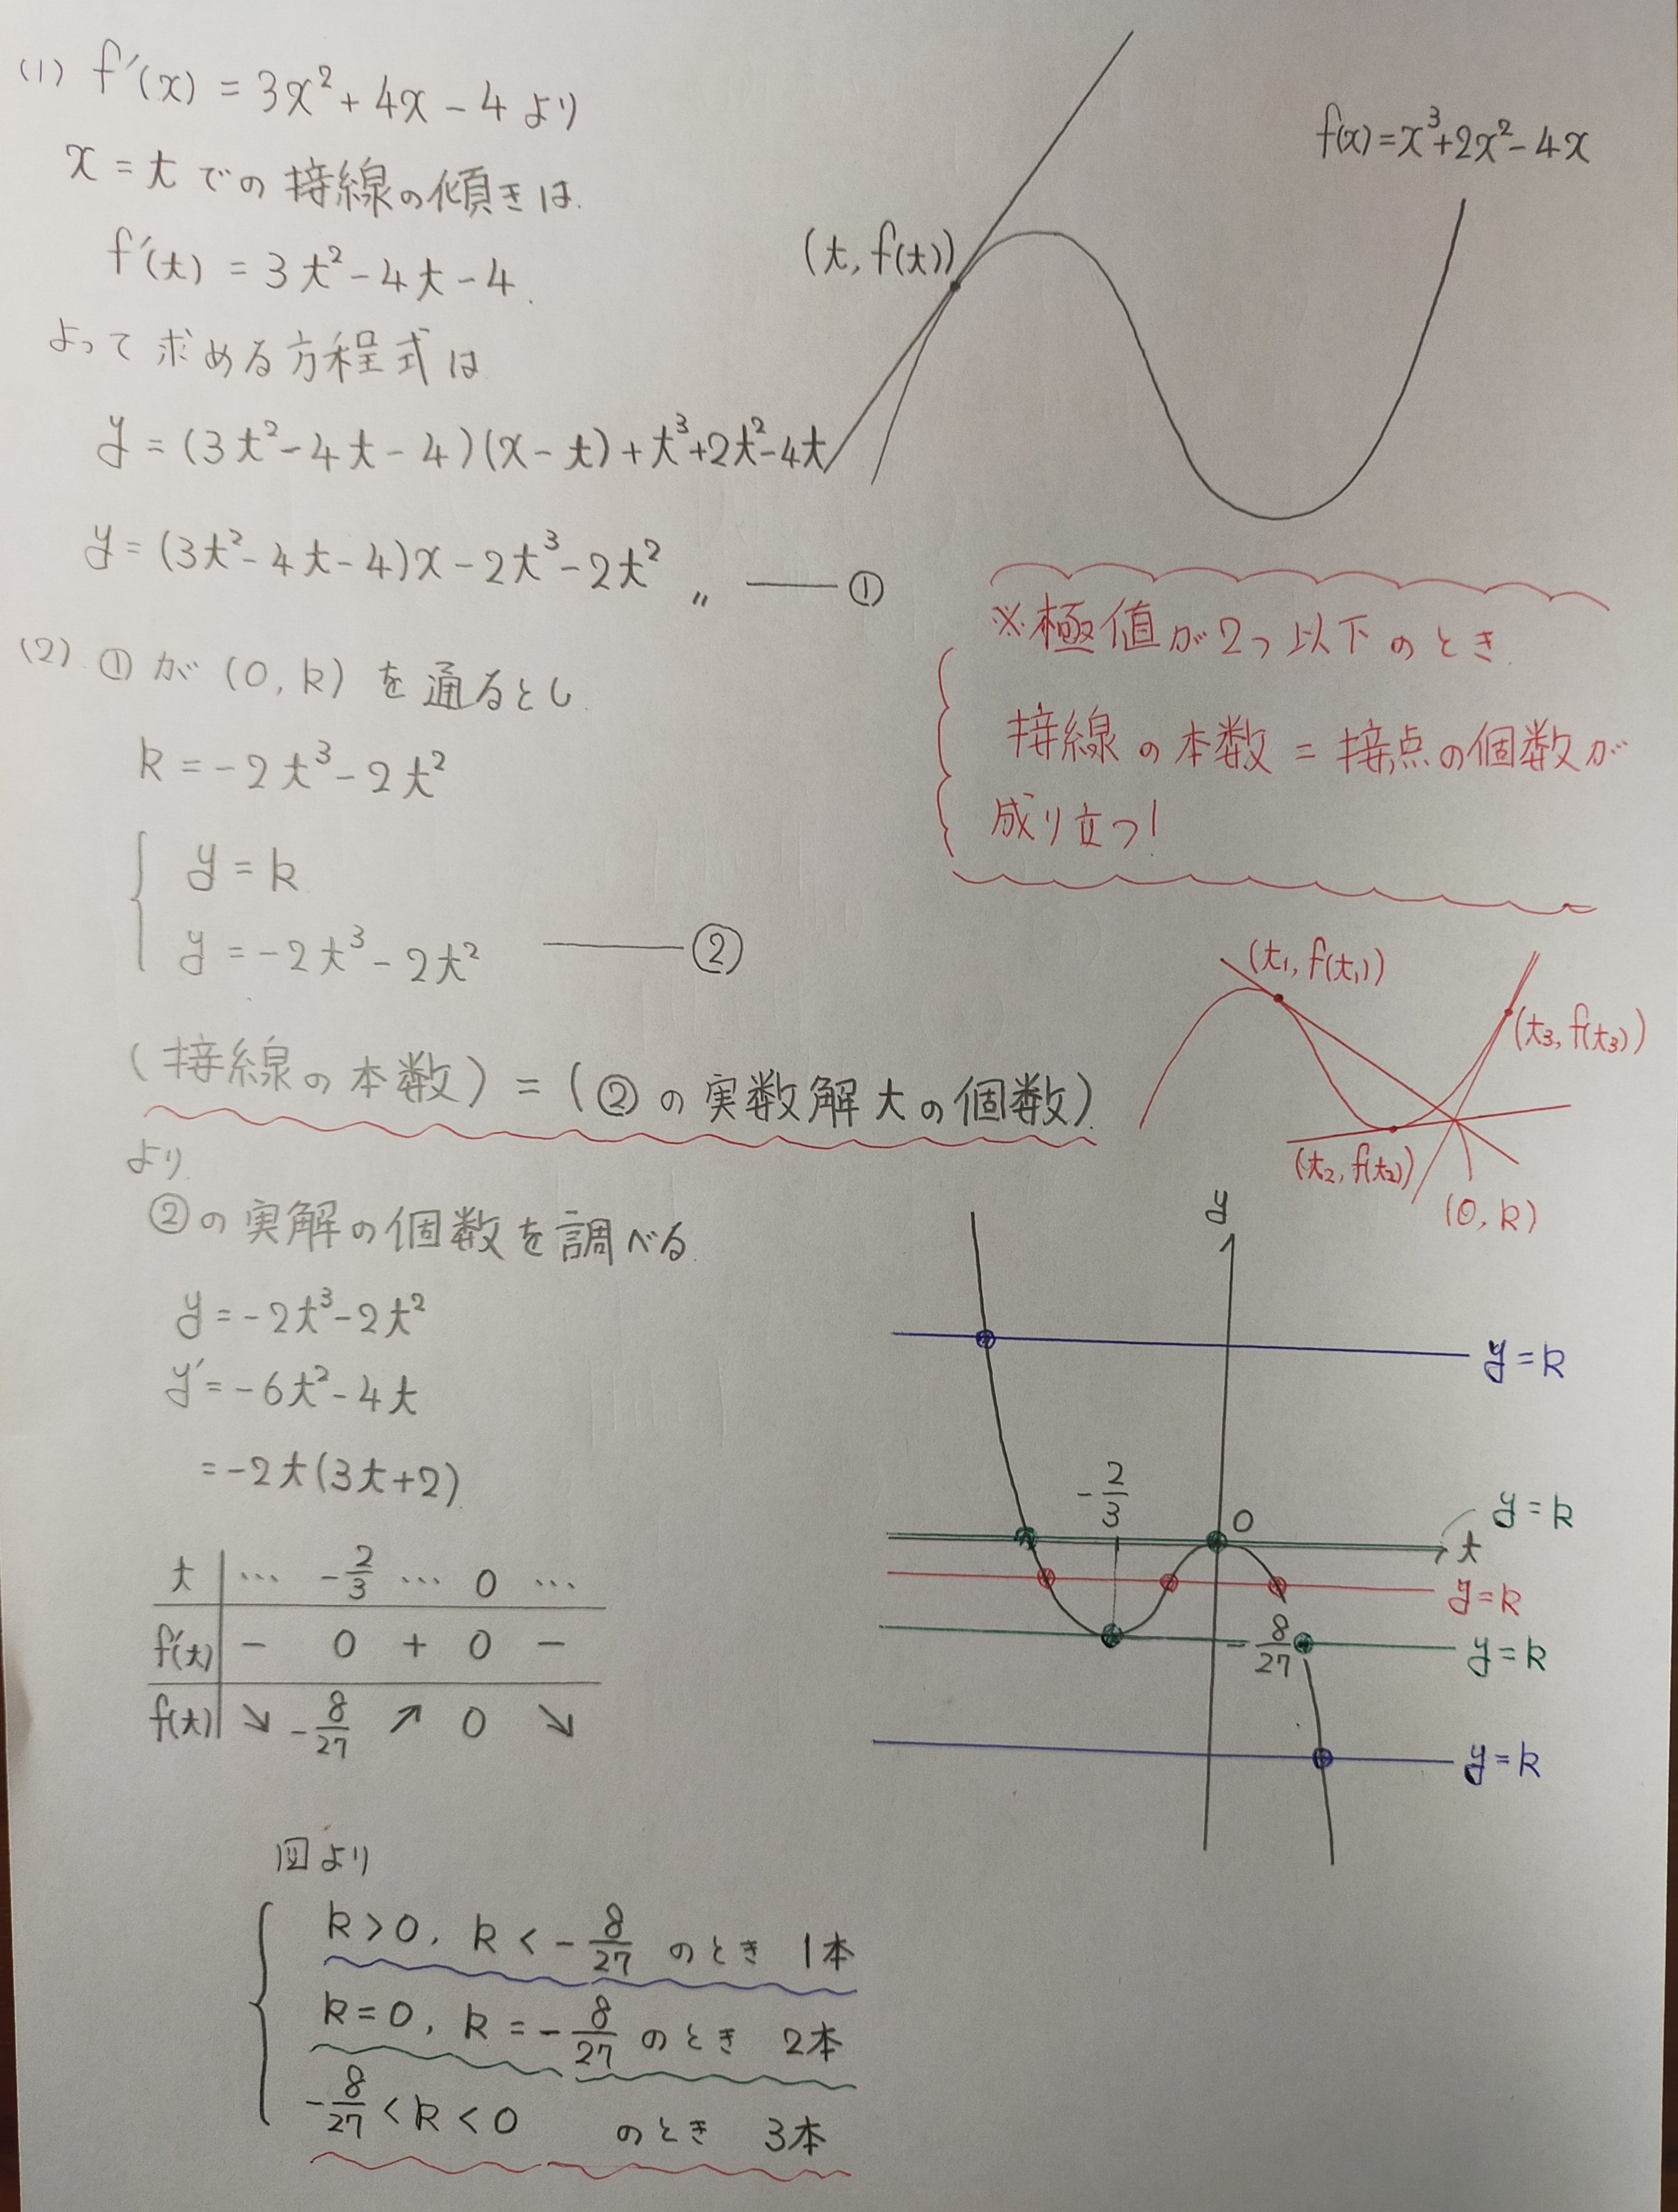 (1) f'(x) = 3x²+4x-4 より
x=tでの接線の傾きは
f'(t) = 3t²-4t-4
よって求める方程式は
y=(3t²-4t-4)(x-t)+t³+2t²-4t
y=(3t²-4t-4)x-2t³-2t² 〃 ――①
f(x)=x³+2x²-4x
(t, f(t))
※極値が2つ以下のとき
接線の本数=接点の個数が
成り立つ!
(2) ①が(0, k)を通るとし
k=-2t³-2t²
y=k
y=-2t³-2t² ――②
(接線の本数)=(②の実数解tの個数)
より
(t₁, f(t₁))
(t₃, f(t₃))
(t₂, f(t₂))
(0, k)
②の実解の個数を調べる
y=-2t³-2t²
y'=-6t²-4t
=-2t(3t+2)
t … -2/3 … 0 …
f'(t) - 0 + 0 -
f(t) ↘ -8/27 ↗ 0 ↘
y
y=k
-2/3
0
y=k
t
y=k
-8/27
y=k
y=k
図より
k>0, k<-8/27 のとき 1本
k=0, k=-8/27 のとき 2本
-8/27<k<0 のとき 3本